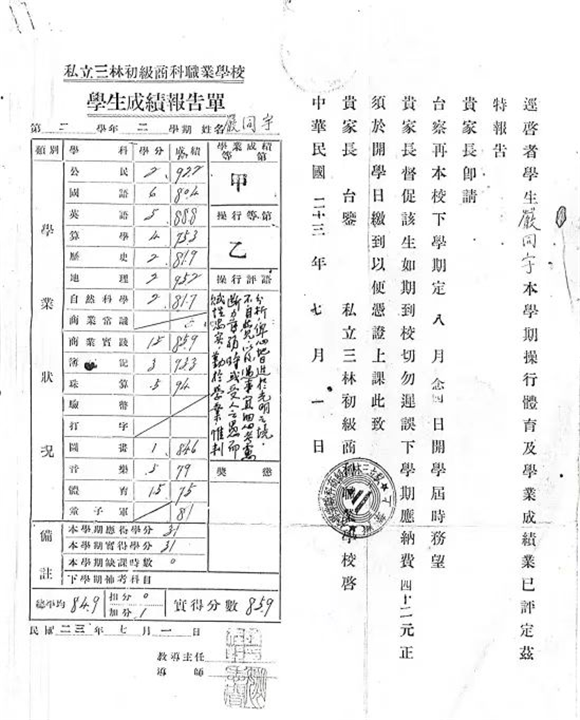 逕啓者學生嚴同宇本學期操行體育及學業成績業已評定茲
特報告
貴家長卽請
台察再本校下學期定八月念四日開學屆時務望
貴家長督促該生如期到校切勿遲誤下學期應納費四十二元正
須於開學日繳到以便憑證上課此致
貴家長 台鑒 私立三林初級商 學校啓
中華民國二十三年七月一日
私立三林初級商科職業學校
學生成績報告單
第二學年二學期 姓名嚴同宇
類別 學科 學分 成績 學業成績等第
學業狀況
公民 2 92.2 甲
國語 6 80.4
英語 5 88.8 操行等第
算學 4 75.3 乙
歷史 2 81.9
地理 2 95.2 操行評語
自然科學 2 81.7
商業常識
商業實踐 1.5 85.9
簿記 3 73.3
珠算 .5 94
驗幣
打字
圖畫 1 84.6
音樂 .5 79 獎懲
體育 1.5 75
童子軍 81
備註
本學期應得學分 31
本學期實得學分 31
本學期缺課時數 0
下學期補考科目
總平均 84.9 扣分 0 加分 1 實得分數 85.9
民國二三年七月一日
教導主任
導師